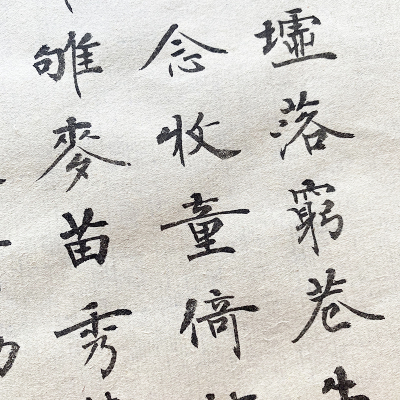 墟落窮巷
念收童倚
雊麥苗秀